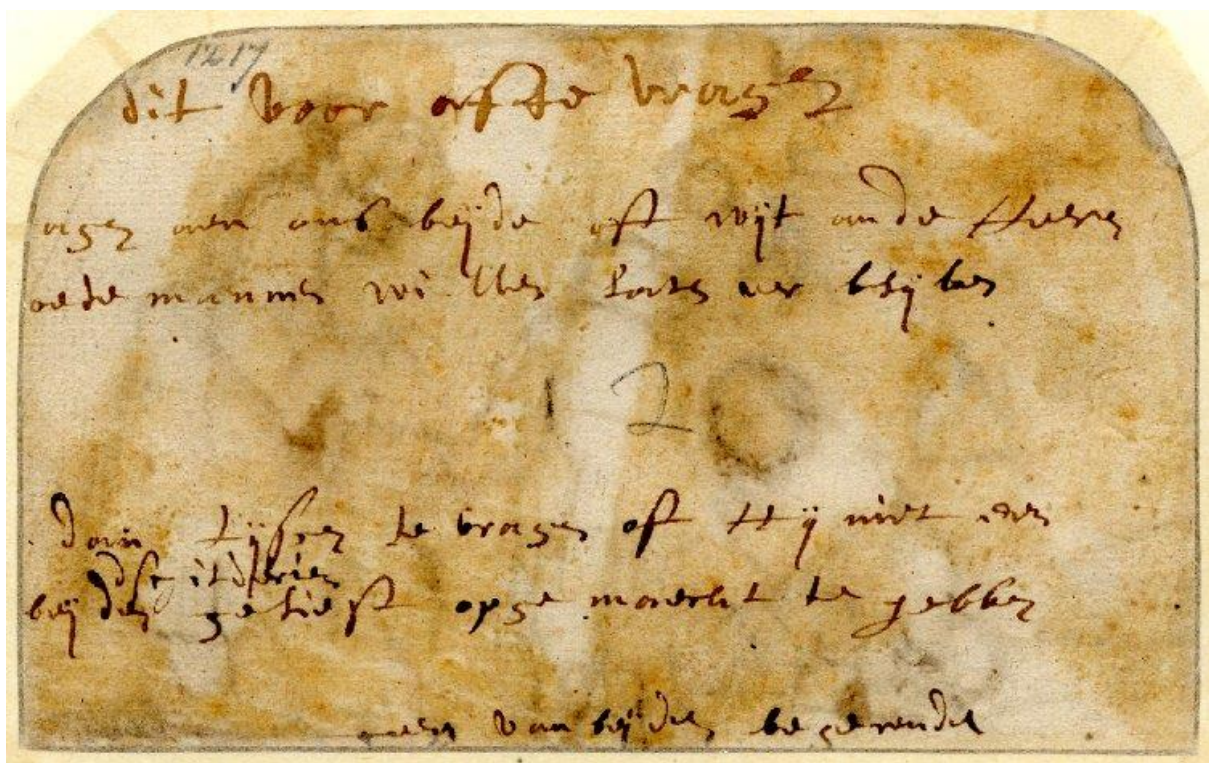 1217
dit voor af te vragen
agen aen ons beijde oft wijt an de Heeren
oede mannen willen laten verblijben
120
tijssen te vragen oft Hij niet een
schilderien
beijden gelieft opgemaeckt te hebben
geen van beijden begerende